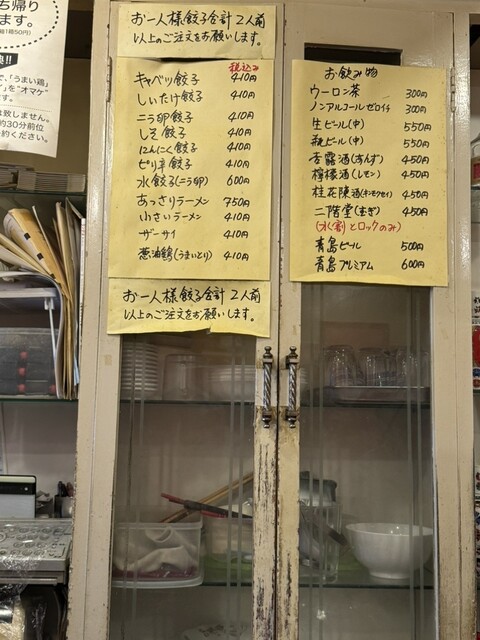 ち帰り
ます。
お一人様餃子合計 2人前
以上のご注文をお願いします。
税込み
キャベツ餃子 410円
しいたけ餃子 410円
ニラ卵餃子 410円
しそ餃子 410円
にんにく餃子 410円
ピリ辛餃子 410円
水餃子(ニラ卵) 600円
あっさりラーメン 750円
小さいラーメン 410円
ザーサイ 410円
葱油鶏(うまいとり) 410円
お一人様餃子合計 2人前
以上のご注文をお願いします。
お飲み物
ウーロン茶 300円
ノンアルコールゼロイチ 300円
生ビール(中) 550円
瓶ビール(中) 550円
杏露酒(あんず) 450円
檸檬酒(レモン) 450円
桂花陳酒(キンモクセイ) 450円
二階堂(むぎ) 450円
(水割とロックのみ)
青島ビール 500円
青島プレミアム 600円
で、「うまい鶏」
を"オマケ"
は致しません。
約30分前位
約ください。